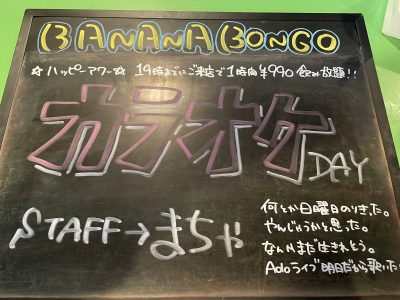 BANANA BONGO
☆ハッピーアワー☆ 19時までにご来店で1時間¥990 飲み放題!!
カラオケ DAY
STAFF→まちゃ
何とか日曜日のりきった。
やんじゃうかと思った。
なんかまだ生きれそう。
Adoライブ明日だから歌いた